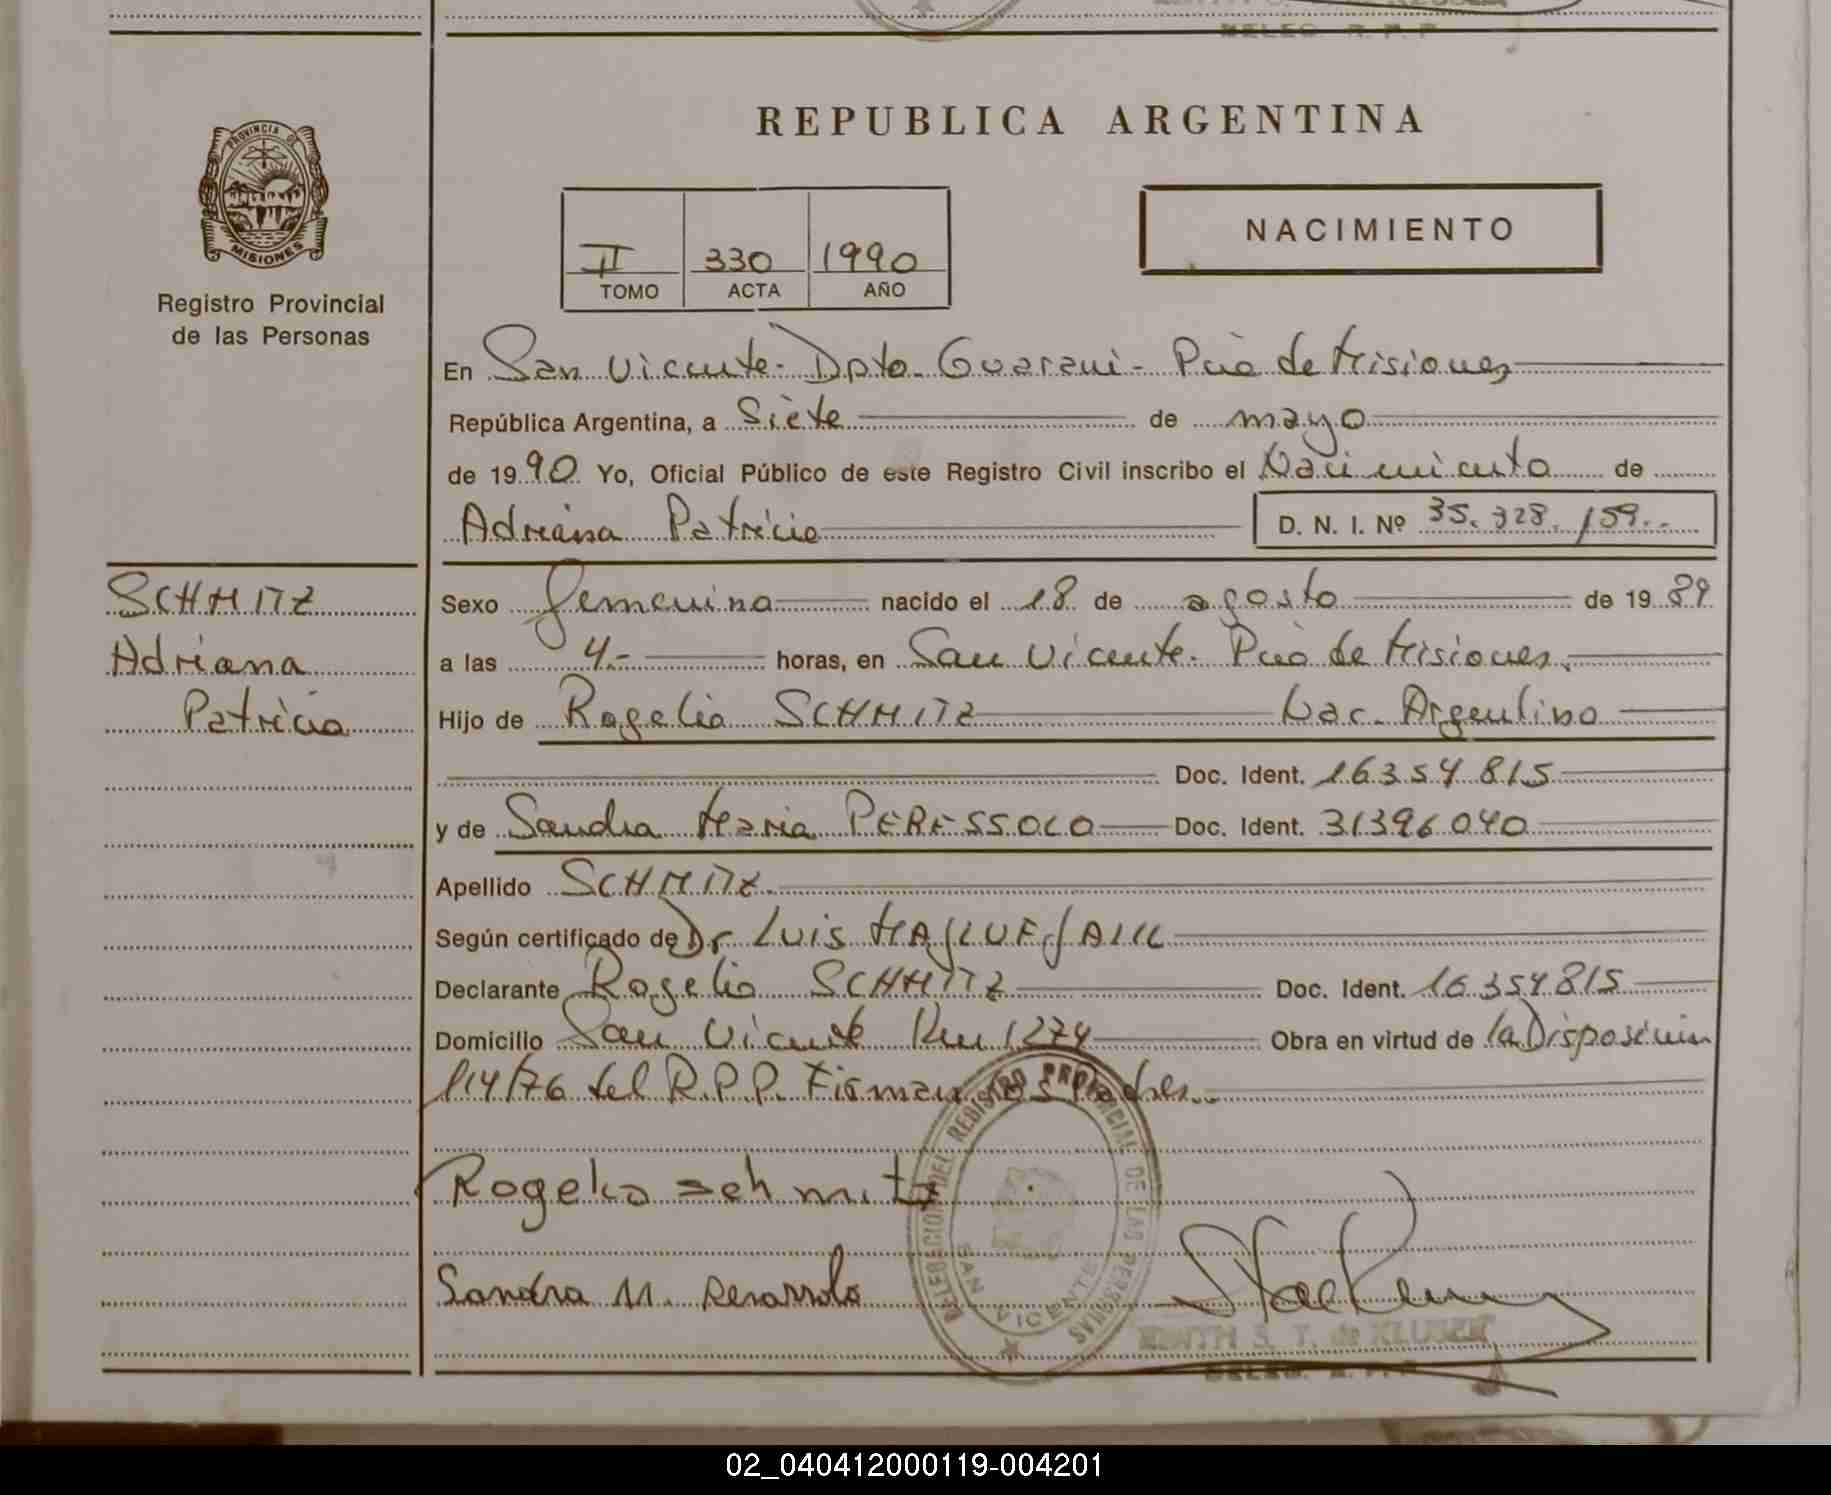 REPUBLICA ARGENTINA
PROVINCIA DE
MISIONES
Registro Provincial
de las Personas
II 330 1990
TOMO ACTA AÑO
NACIMIENTO
En San Vicente - Dpto. Guarani - Pcia de Misiones
República Argentina, a Siete de mayo
de 1990 Yo, Oficial Público de este Registro Civil inscribo el Nacimiento de
Adriana Patricia D. N. I. Nº 35.328.159.-
SCHMITZ
Adriana
Patricia
Sexo femenino nacido el 18 de agosto de 1989
a las 4.- horas, en San Vicente. Pcia de Misiones.
Hijo de Rogelio SCHMITZ Nac. Argentino
Doc. Ident. 16354815
y de Sandra Maria PERESSOLO Doc. Ident. 31396040
Apellido SCHMITZ.
Según certificado de Dr. Luis
Declarante Rogelio SCHMITZ Doc. Ident. 16354815
Domicilio San Vicente Km 1274 Obra en virtud de la Disposición
114/76 del R.P.P. Firman los Padres.
Rogelio schmitz
Sandra M.
DELEGACION DEL REGISTRO PROVINCIAL DE LAS PERSONAS
SAN VICENTE
EDITH S. T. de
DELEG. R. P. P.
02_040412000119-004201